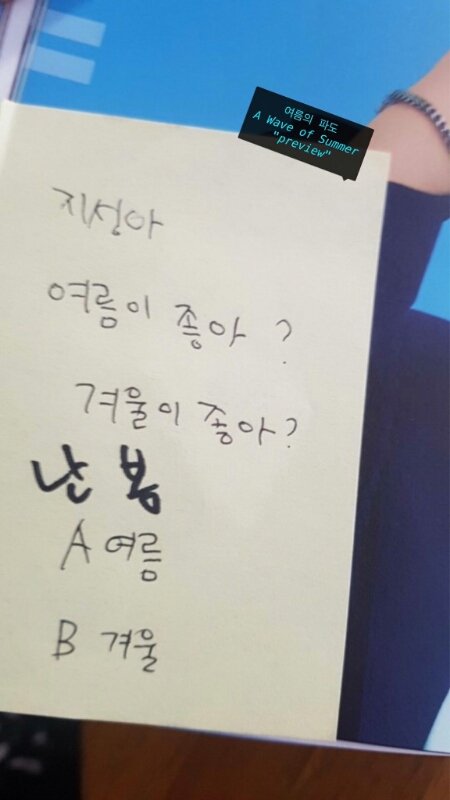 여름의 파도
A Wave of Summer
"preview"
지성아
여름이 좋아 ?
겨울이 좋아?
난 봄
A 여름
B 겨울